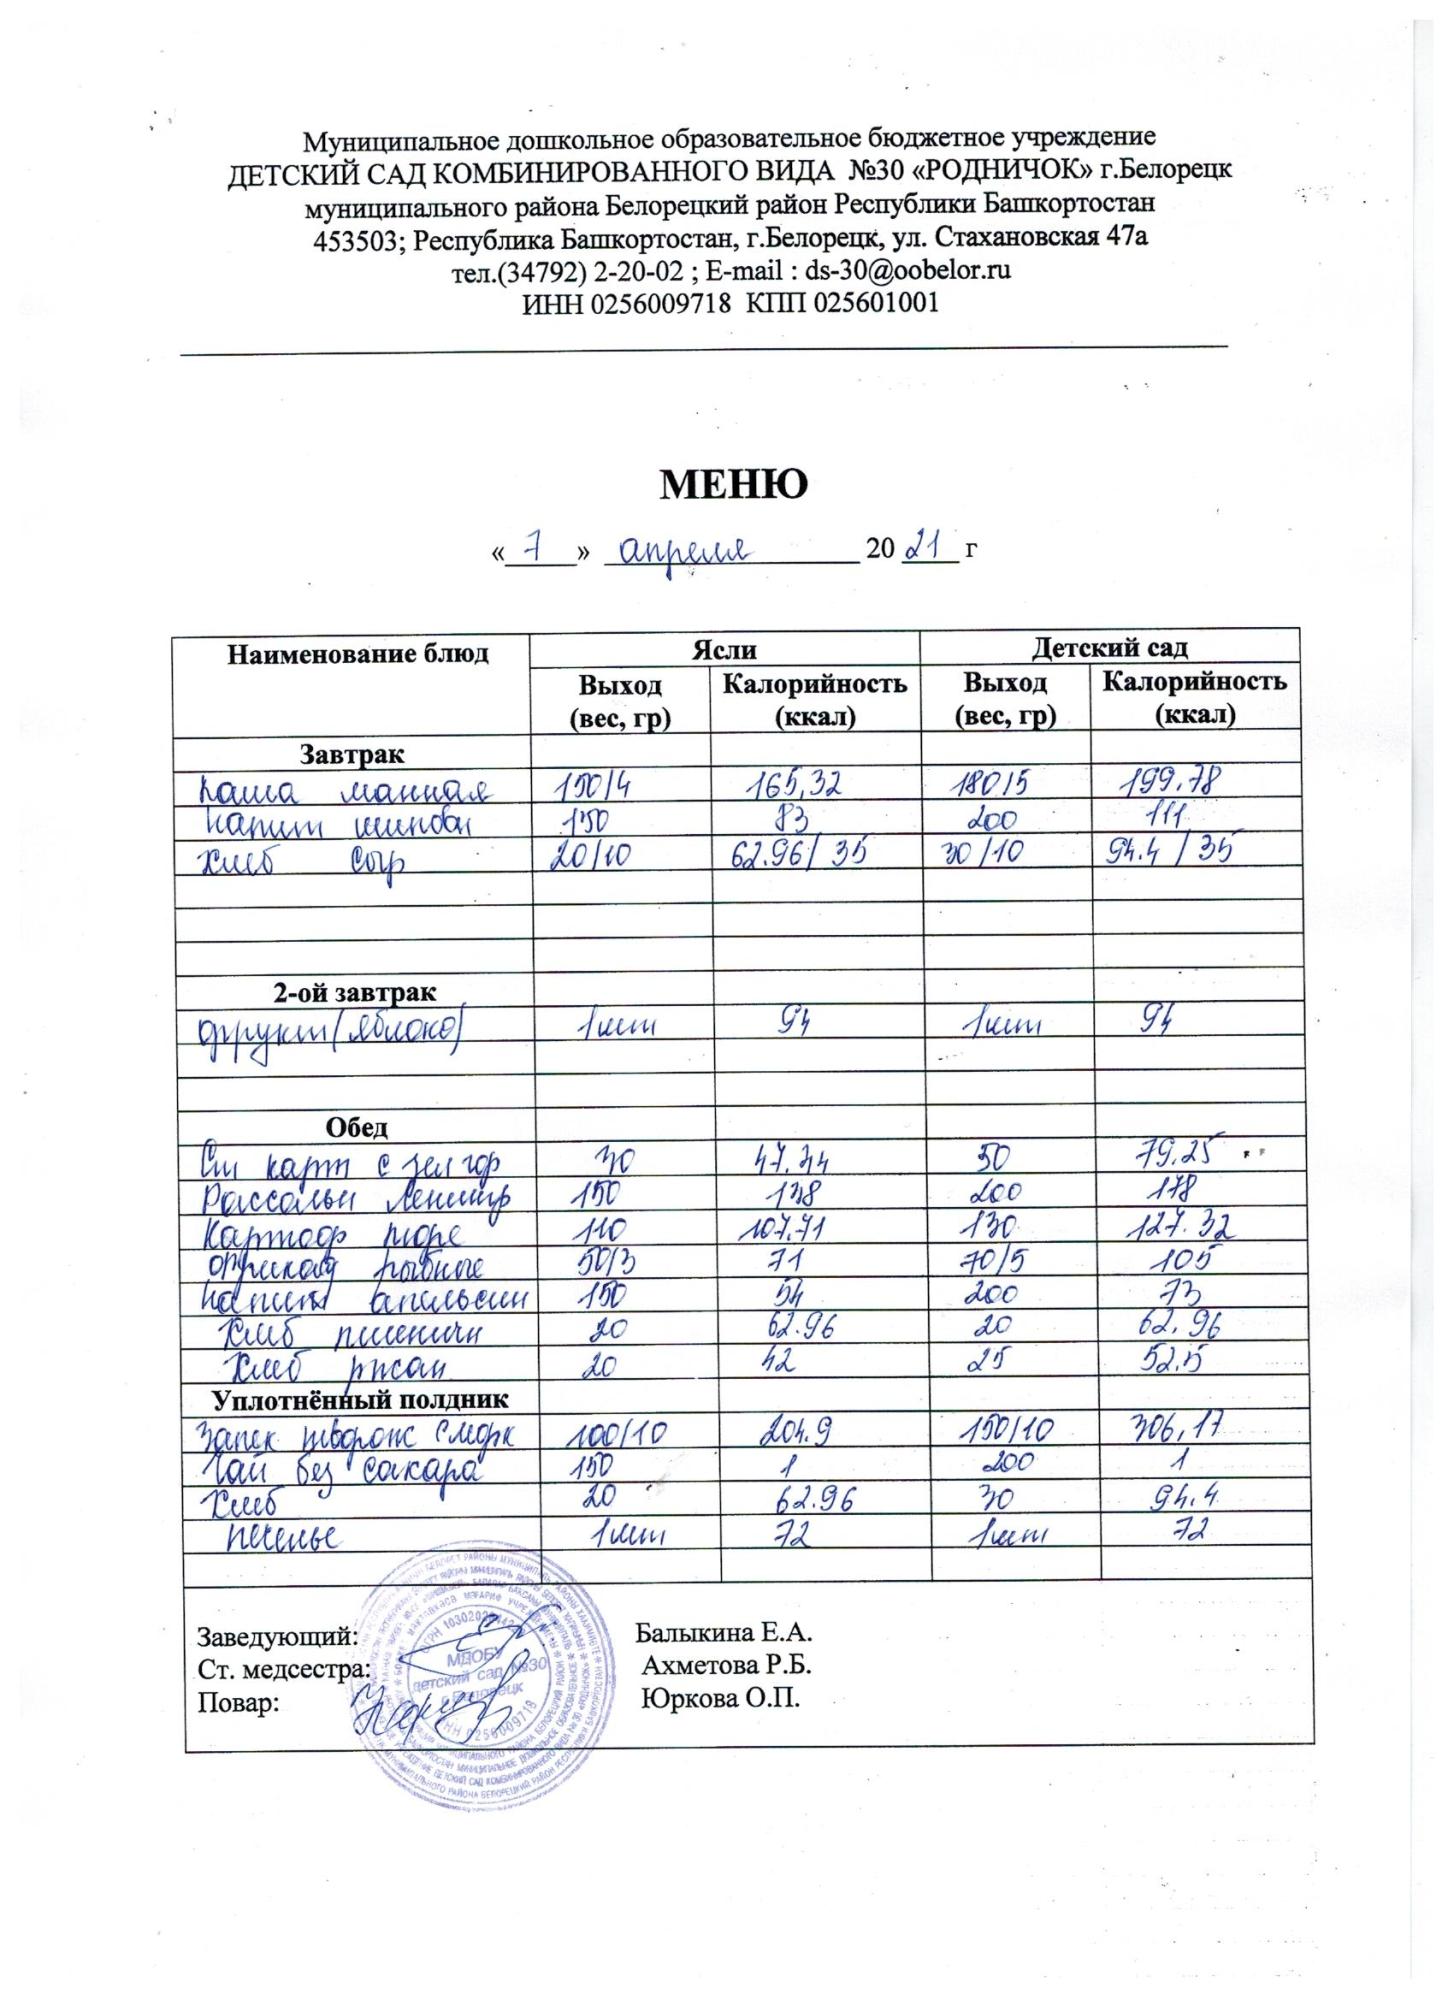 Муниципальное дошкольное образовательное бюджетное учреждение
ДЕТСКИЙ САД КОМБИНИРОВАННОГО ВИДА №30 «РОДНИЧОК» г.Белорецк
муниципального района Белорецкий район Республики Башкортостан
453503; Республика Башкортостан, г.Белорецк, ул. Стахановская 47а
тел.(34792) 2-20-02 ; E-mail : ds-30@oobelor.ru
ИНН 0256009718 КПП 025601001
МЕНЮ
« 7 » апреля 20 21 г
Наименование блюд Ясли Детский сад
Выход (вес, гр) Калорийность (ккал) Выход (вес, гр) Калорийность (ккал)
Завтрак
Каша манная 150/4 165,32 180/5 199,78
Напит шиповн 150 83 200 111
Хлеб сыр 20/10 62.96/ 35 30/10 94.4 / 35
2-ой завтрак
фрукт(яблоко) 1шт 94 1шт 94
Обед
Сал карт с зел гор 30 47.44 50 79.25
Рассольн Ленингр 150 138 200 178
Картоф пюре 110 107.71 130 127.32
Фрикад рыбные 50/3 71 70/5 105
Напиток апельсин 150 54 200 73
Хлеб пшеничн 20 62.96 20 62.96
Хлеб ржан 20 42 25 52.5
Уплотнённый полдник
Запек творож с морк 100/10 204.9 150/10 306,17
Чай без сахара 150 1 200 1
Хлеб 20 62.96 30 94.4
печенье 1шт 72 1шт 72
Заведующий: Балыкина Е.А.
Ст. медсестра: Ахметова Р.Б.
Повар: Юркова О.П.
МДОБУ
детский сад №30
г.Белорецк
ИНН 0256009718